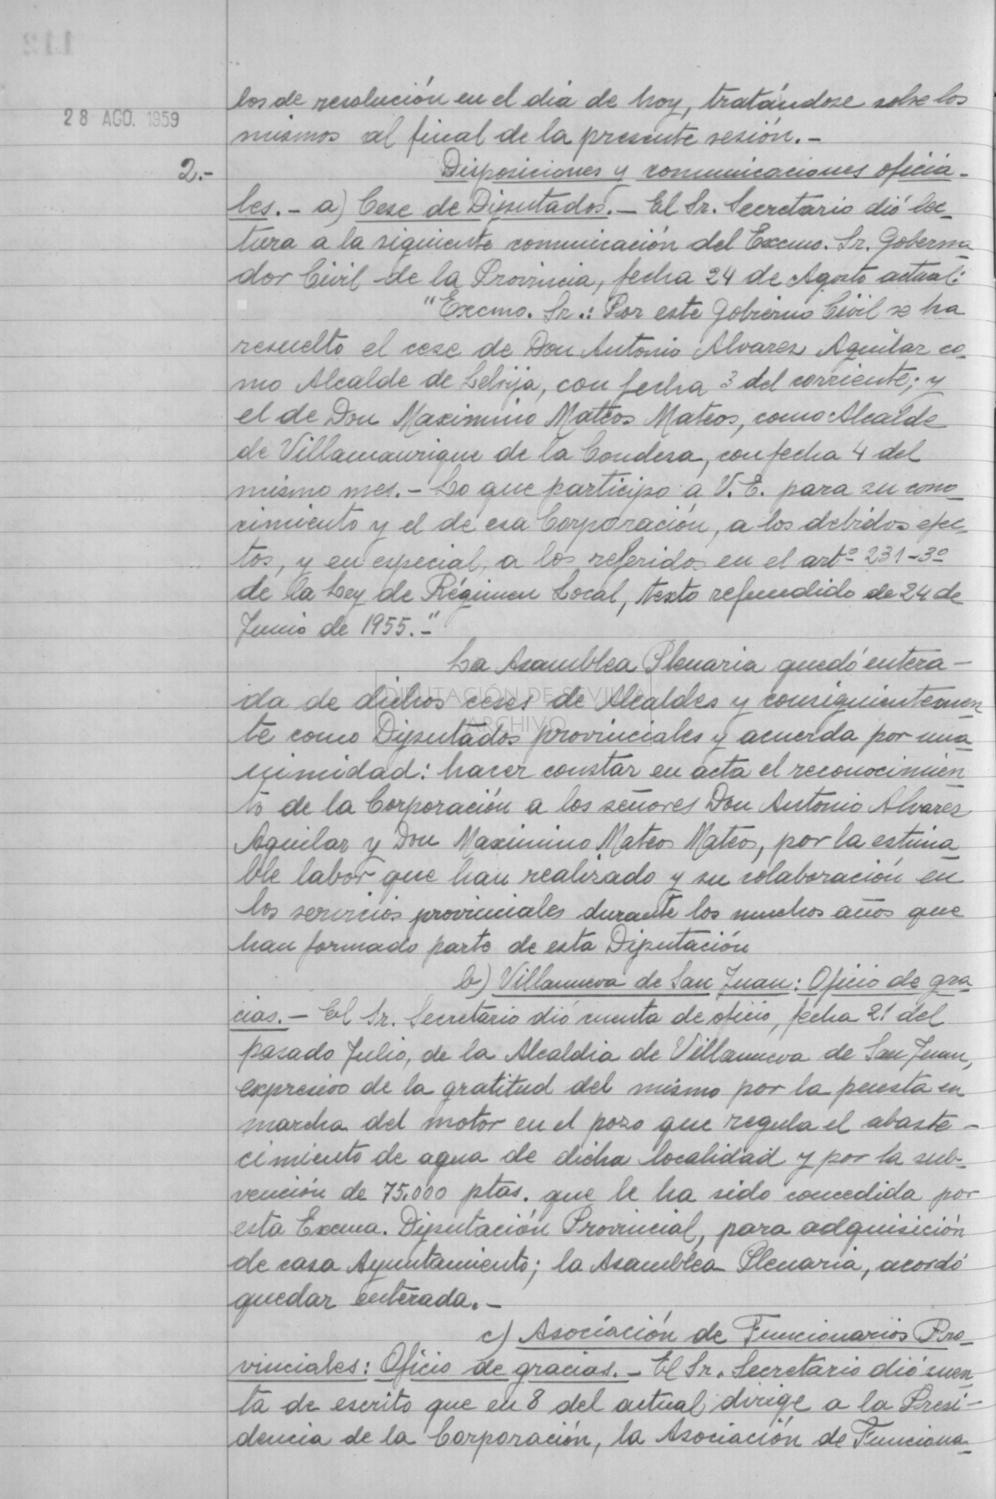 112
28 AGO. 1959
los de resolución en el dia de hoy, tratándose sobre los
mismos al final de la presente sesión.-
2.-
Disposiciones y comunicaciones oficia-
les.- a) Cese de Diputados.- El Sr. Secretario dió lec-
tura a la siguiente comunicación del Excmo. Sr. Goberna-
dor Civil de la Provincia, fecha 24 de Agosto actual:
"Excmo. Sr.: Por este Gobierno Civil se ha
resuelto el cese de Don Antonio Alvarez Aguilar co-
mo Alcalde de Lebrija, con fecha 3 del corriente; y
el de Don Maximino Mateos Mateos, como Alcalde
de Villamanrique de la Condesa, con fecha 4 del
mismo mes.- Lo que participo a V.E. para su cono-
cimiento y el de esa Corporación, a los debidos efec-
tos, y en especial, a los referidos en el artº 231-3º
de la Ley de Régimen Local, texto refundido de 24 de
Junio de 1955.-"
La Asamblea Plenaria quedó entera-
da de dichos ceses de Alcaldes y consiguientemen-
te como Diputados provinciales y acuerda por una-
nimidad: hacer constar en acta el reconocimien-
to de la Corporación a los señores Don Antonio Alvarez
Aguilar y Don Maximino Mateos Mateos, por la estima-
ble labor que han realizado y su colaboración en
los servicios provinciales durante los muchos años que
han formado parte de esta Diputación
b) Villanueva de San Juan: Oficio de gra-
cias.- El Sr. Secretario dió cuenta de oficio, fecha 21 del
pasado Julio, de la Alcaldia de Villanueva de San Juan,
expresivo de la gratitud del mismo por la puesta en
marcha del motor en el pozo que regula el abaste-
cimiento de agua de dicha localidad y por la sub-
vención de 75.000 ptas. que le ha sido concedida por
esta Excma. Diputación Provincial, para adquisición
de casa Ayuntamiento; la Asamblea Plenaria, acordó
quedar enterada.-
c) Asociación de Funcionarios Pro-
vinciales: Oficio de gracias.- El Sr. Secretario dió cuen-
ta de escrito que en 8 del actual dirige a la Presi-
dencia de la Corporación, la Asociación de Funciona-
DIPUTACIÓN DE SEVILLA
ARCHIVO